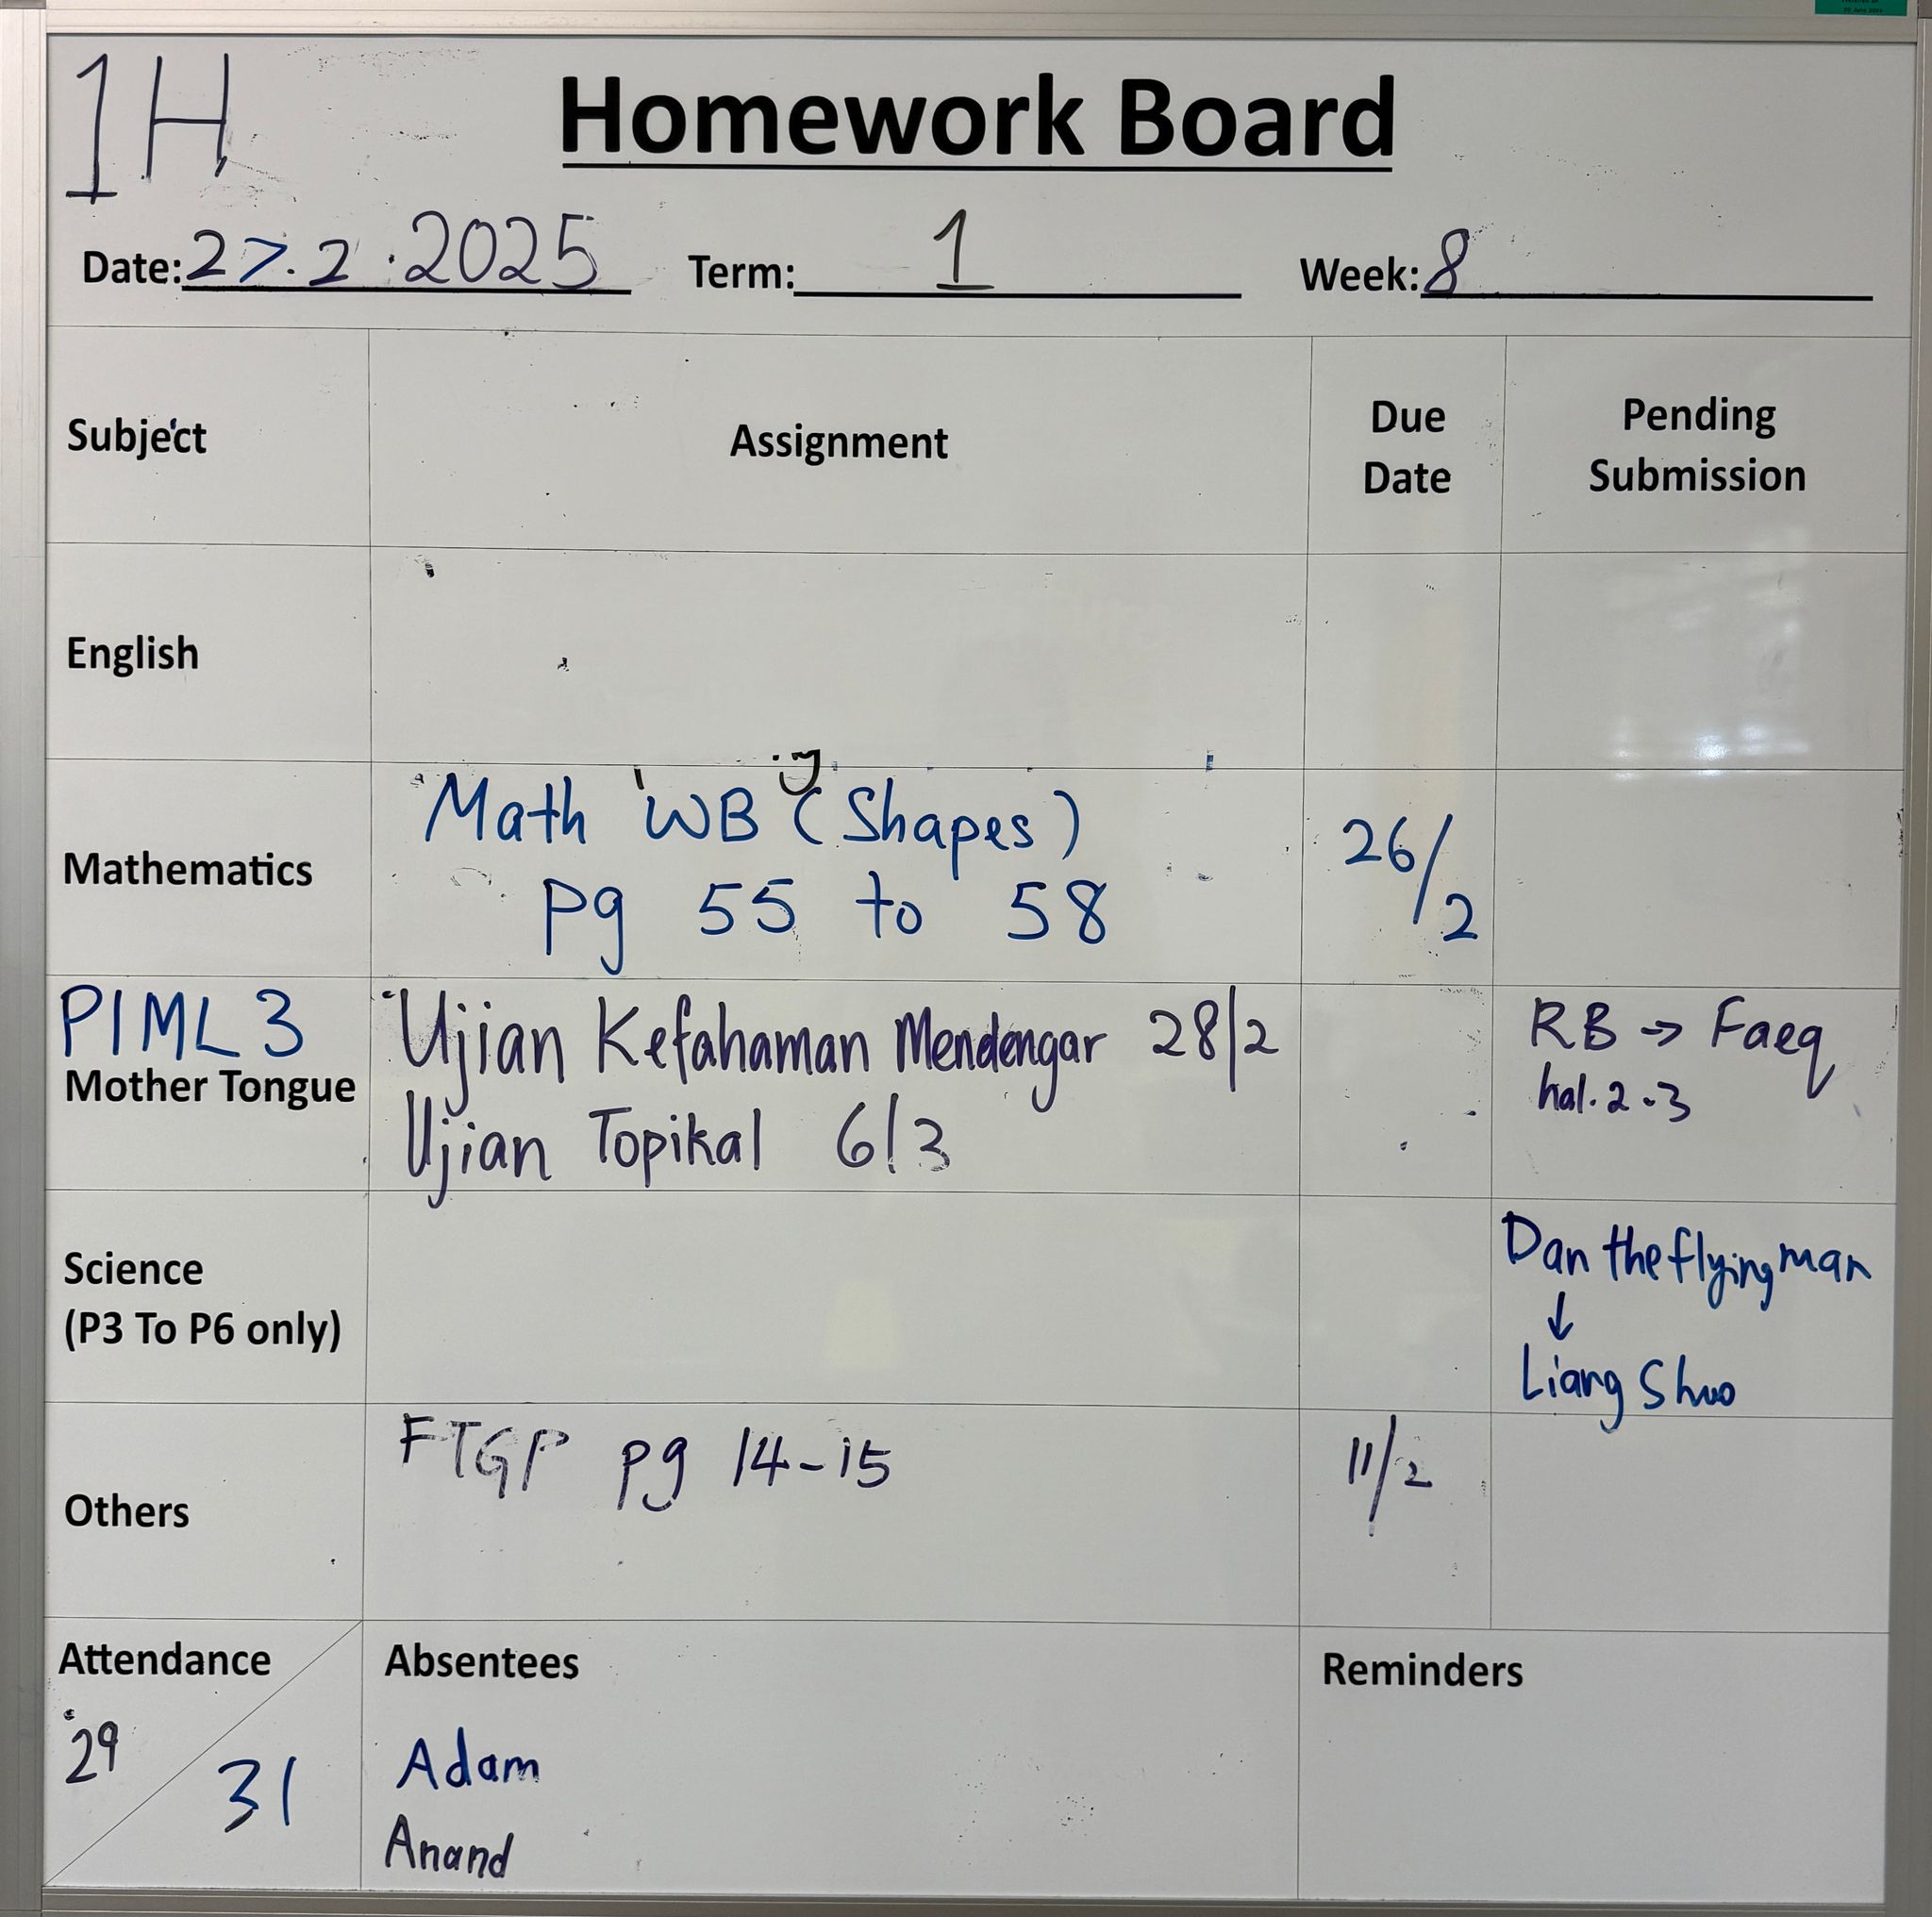 1H
Homework Board
Date: 27.2.2025 Term: 1 Week: 8
Subject Assignment Due Date Pending Submission
English
Mathematics
Math WB (Shapes)
pg 55 to 58
26/2
PIML 3
Mother Tongue
Ujian Kefahaman Mendengar 28/2
Ujian Topikal 6/3
RB → Faeq
hal. 2-3
Science
(P3 To P6 only)
Dan the flying man
↓
Liang Shuo
Others
FTGP pg 14-15
11/2
Attendance
29
31
Absentees
Adam
Anand
Reminders